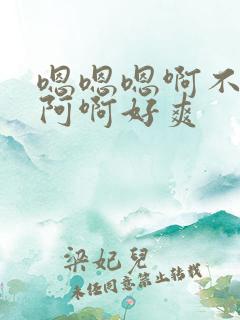 嗯嗯嗯啊不
阿啊好爽
梁妃兒
未经同意禁止转载